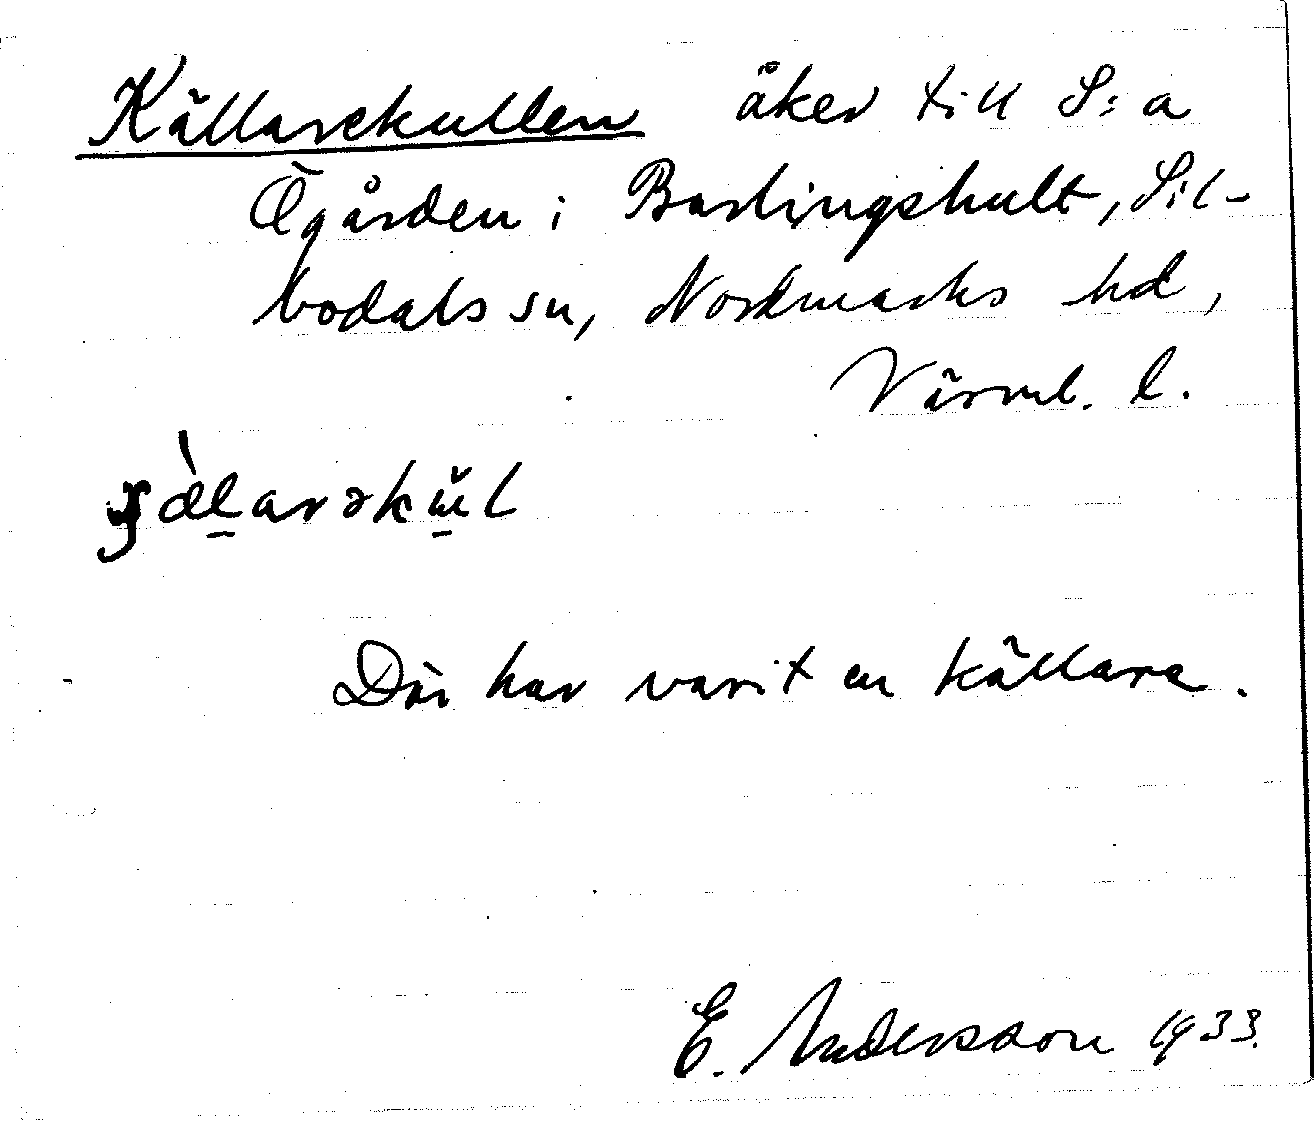 Källarekullen åker till S:a
Ögården i Barlingshult, Sil-
bodals sn, Nordmarks hd,
Värml. l.
Där har varit en källare.
E. Andersson 1933.